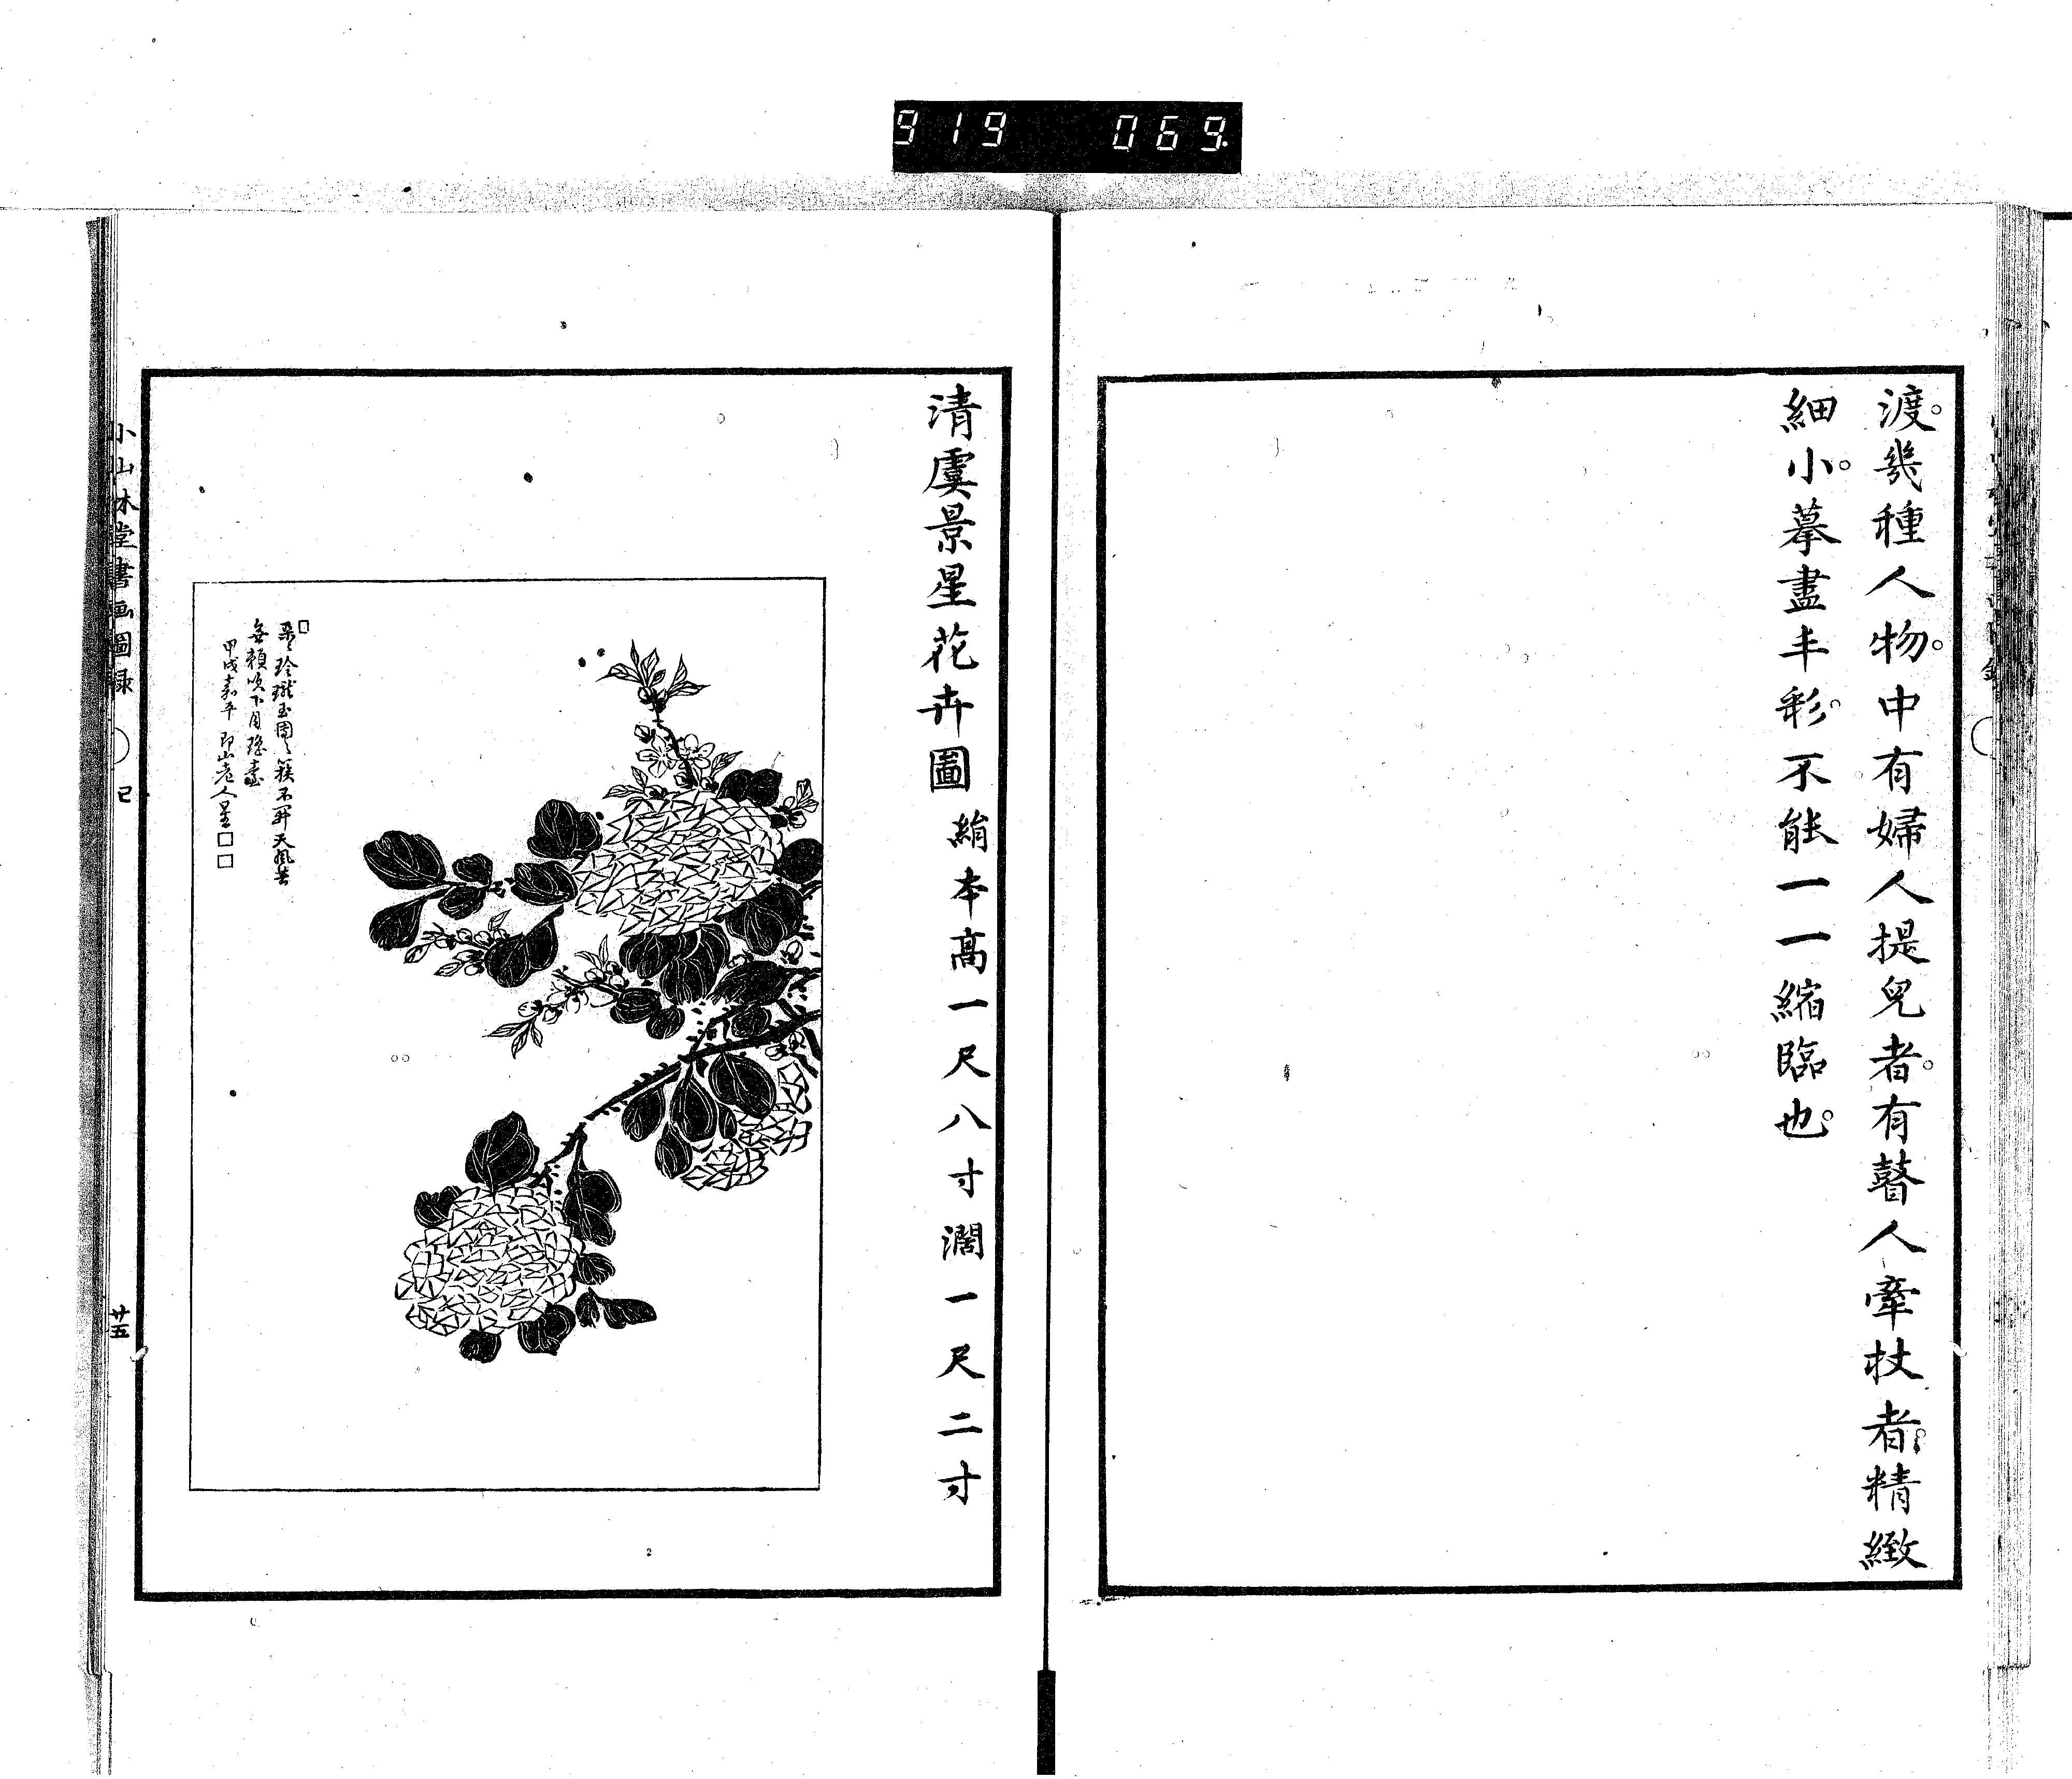 919 069
渡幾種人物中有婦人提兒者有瞽人牽杖者精緻
細小摹盡丰彩不能一一縮臨也
清虞景星花卉圖 絹本高一尺八寸濶一尺二寸
玲瓏玉團〻簇不開天風
無賴吹下自瑤臺
甲戌嘉平 山老人星
小山林堂書画圖録 巳 廿五